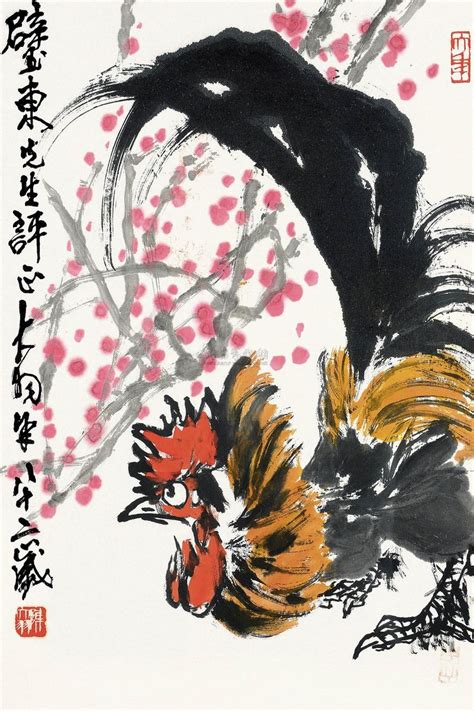 璧東先生評正大羽年八十二歲